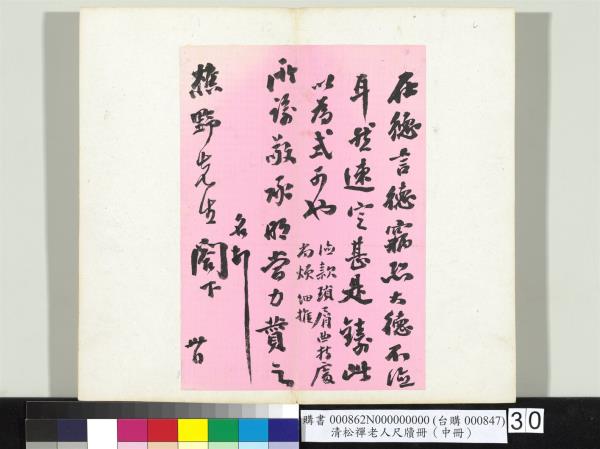 言德竊大德不
耳速定甚是此
以為式可也
款瑣屑曲折處
尚煩細推
所論敬承明當力贊之
名
樵野先生閣下
購書 000862N000000000 (台購 000847)
清松禪老人尺牘冊（中冊）
30